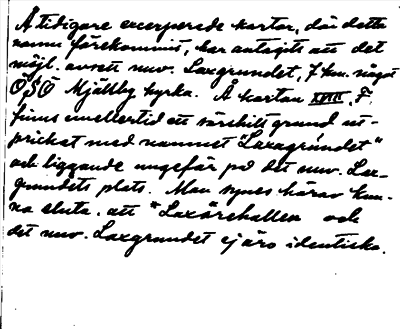 Å tidigare excerperade kartor, där detta
namn förekommit, har antagits att det
möjl. avsett nuv. Laxgrundet, 7 km. något
ÖSÖ Mjällby kyrka. Å kartan XVIII, F.
finns emellertid ett särskilt grund ut-
prickat med namnet "Laxagrundet"
och liggande ungefär på det nuv. Lax-
grundets plats. Man synes härav kun-
na sluta, att "Laxörehallen och
det nuv. Laxgrundet ej äro identiska.